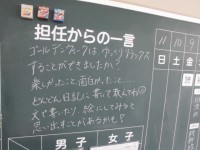 担任からの一言
ゴールデンウィークは ゆっくり リラックス
することができましたか?
楽しかったこと、面白かったこと…
どんどん日記に書いて教えてね
文で書いたり、絵にしてみると
思い出すことがあるかも?
男子 女子
11 10 9
日 土 金